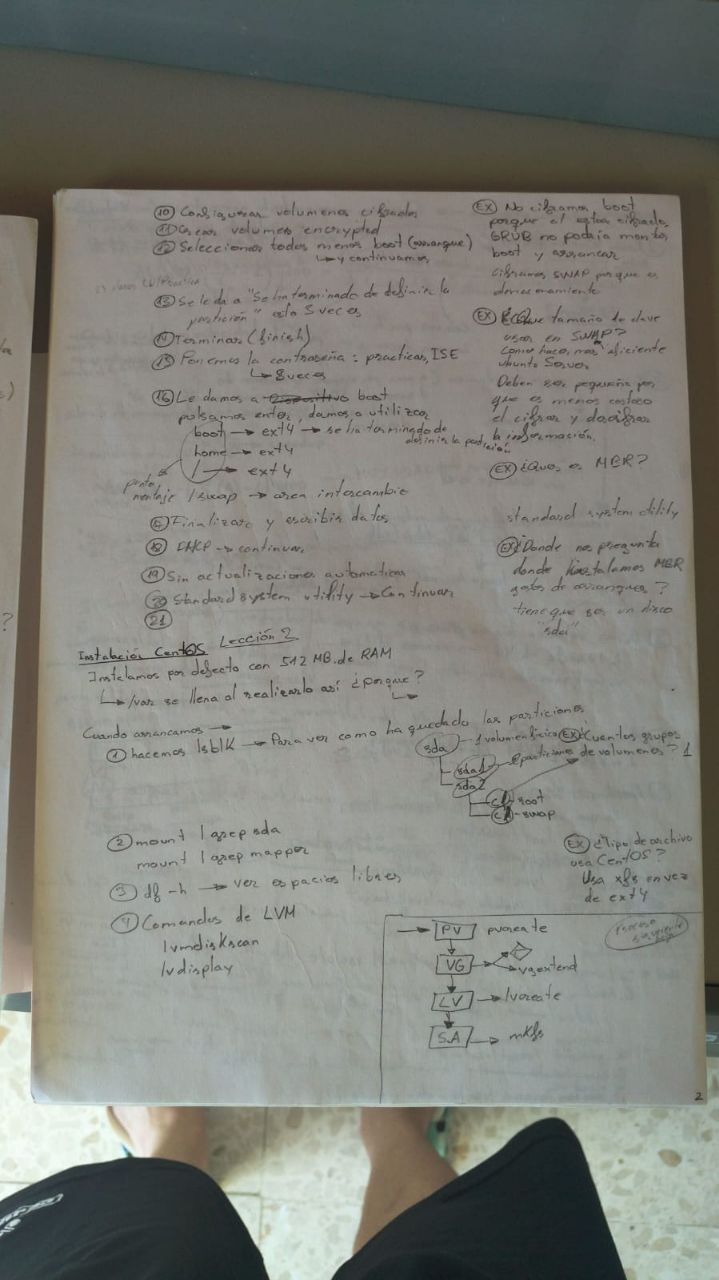 ⑩ Configurar volumenes cifrados
⑪ Crear volumen encrypted
⑫ Seleccionar todos menos boot (arranque)
↳ y continuamos
⑬ Se le da a "Se ha terminado de definir la
partición" esto 5 veces
⑭ Terminar (finish)
⑮ Ponemos la contraseña: practicas, ISE
↳ 8 veces
⑯ Le damos a boot
pulsamos enter, damos a utilizar
boot → ext4 → se ha terminado de
definir la partición
home → ext4
/ → ext4
punto
montaje /swap → area intercambio
Finalizar y escribir datos
⑱ DHCP → continuar
⑲ Sin actualizaciones automaticas
⑳ Standard system utility → Continuar
㉑
EX No ciframos boot
porque si estoa cifrado,
GRUB no podria montar
boot y arrancar
ciframos SWAP porque es
almacenamiento
EX ¿Que tamaño de clave
usar en SWAP?
Como hacer mas eficiente
Ubuntu Server
Deben ser pequeña por
que es menos costoso
el cifrar y descifrar
la información.
EX ¿Que es MBR?
standard system utility
EX ¿Donde nos pregunta
donde instalamos MBR
gestor de arranque?
tiene que ser un disco
"sda"
Instalación CentOS Lección 2
Instalamos por defecto con 512 MB. de RAM
↳ /var se llena al realizarlo así ¿porque?
↳
Cuando arrancamos →
① hacemos lsblk → Para ver como ha quedado las particiones
sda - 1 volumen fisico EX ¿Cuantos grupos
de volumenes? 1
sda1 → particiones
sda2
root
swap
② mount | grep sda
mount | grep mapper
③ df -h → ver espacios libres
④ Comandos de LVM
lvmdiskscan
lvdisplay
EX ¿Tipo de archivo
usa CentOS?
Usa xfs en vez
de ext4
→ PV pvcreate
VG → vgextend
LV → lvcreate
S.A → mkfs
Proceso
2